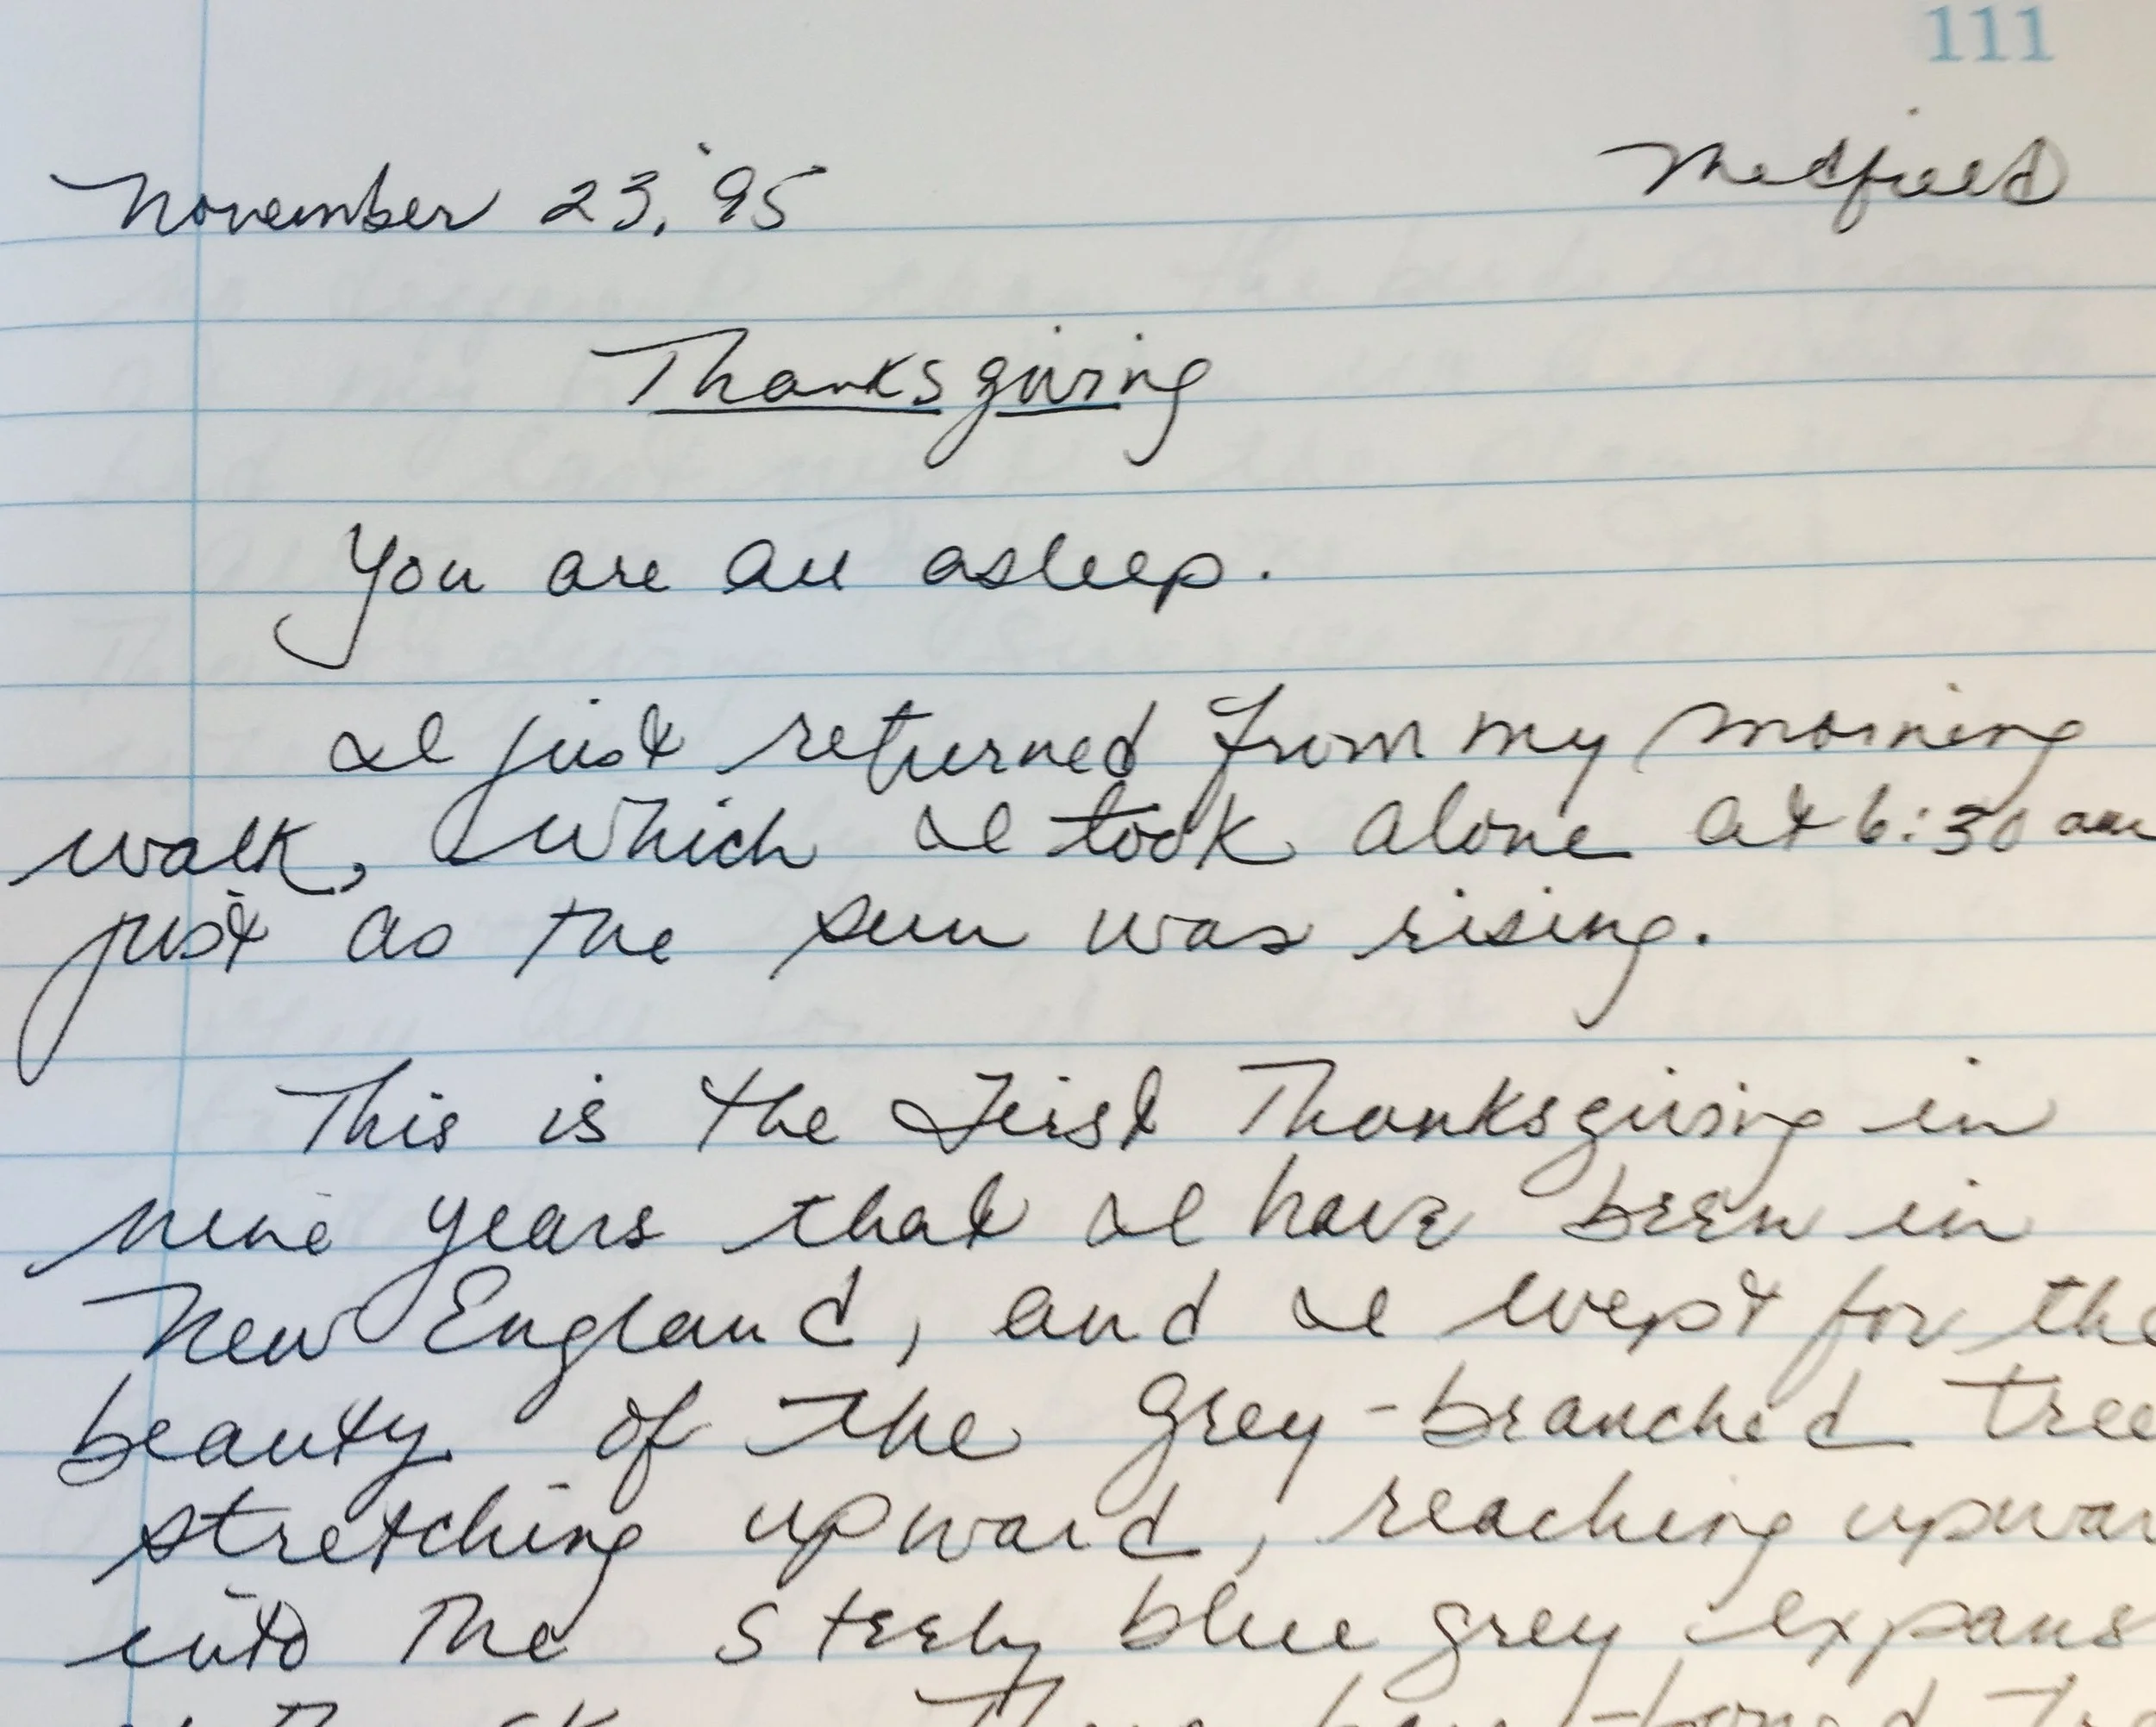 111
November 23, '95 Medfield
Thanksgiving
You are all asleep.
I just returned from my morning
walk, which I took alone at 6:30 am
just as the sun was rising.
This is the first Thanksgiving in
nine years that I have been in
New England, and I wept for the
beauty of the grey-branched tree
stretching upward, reaching upwar
into the steely blue grey expans